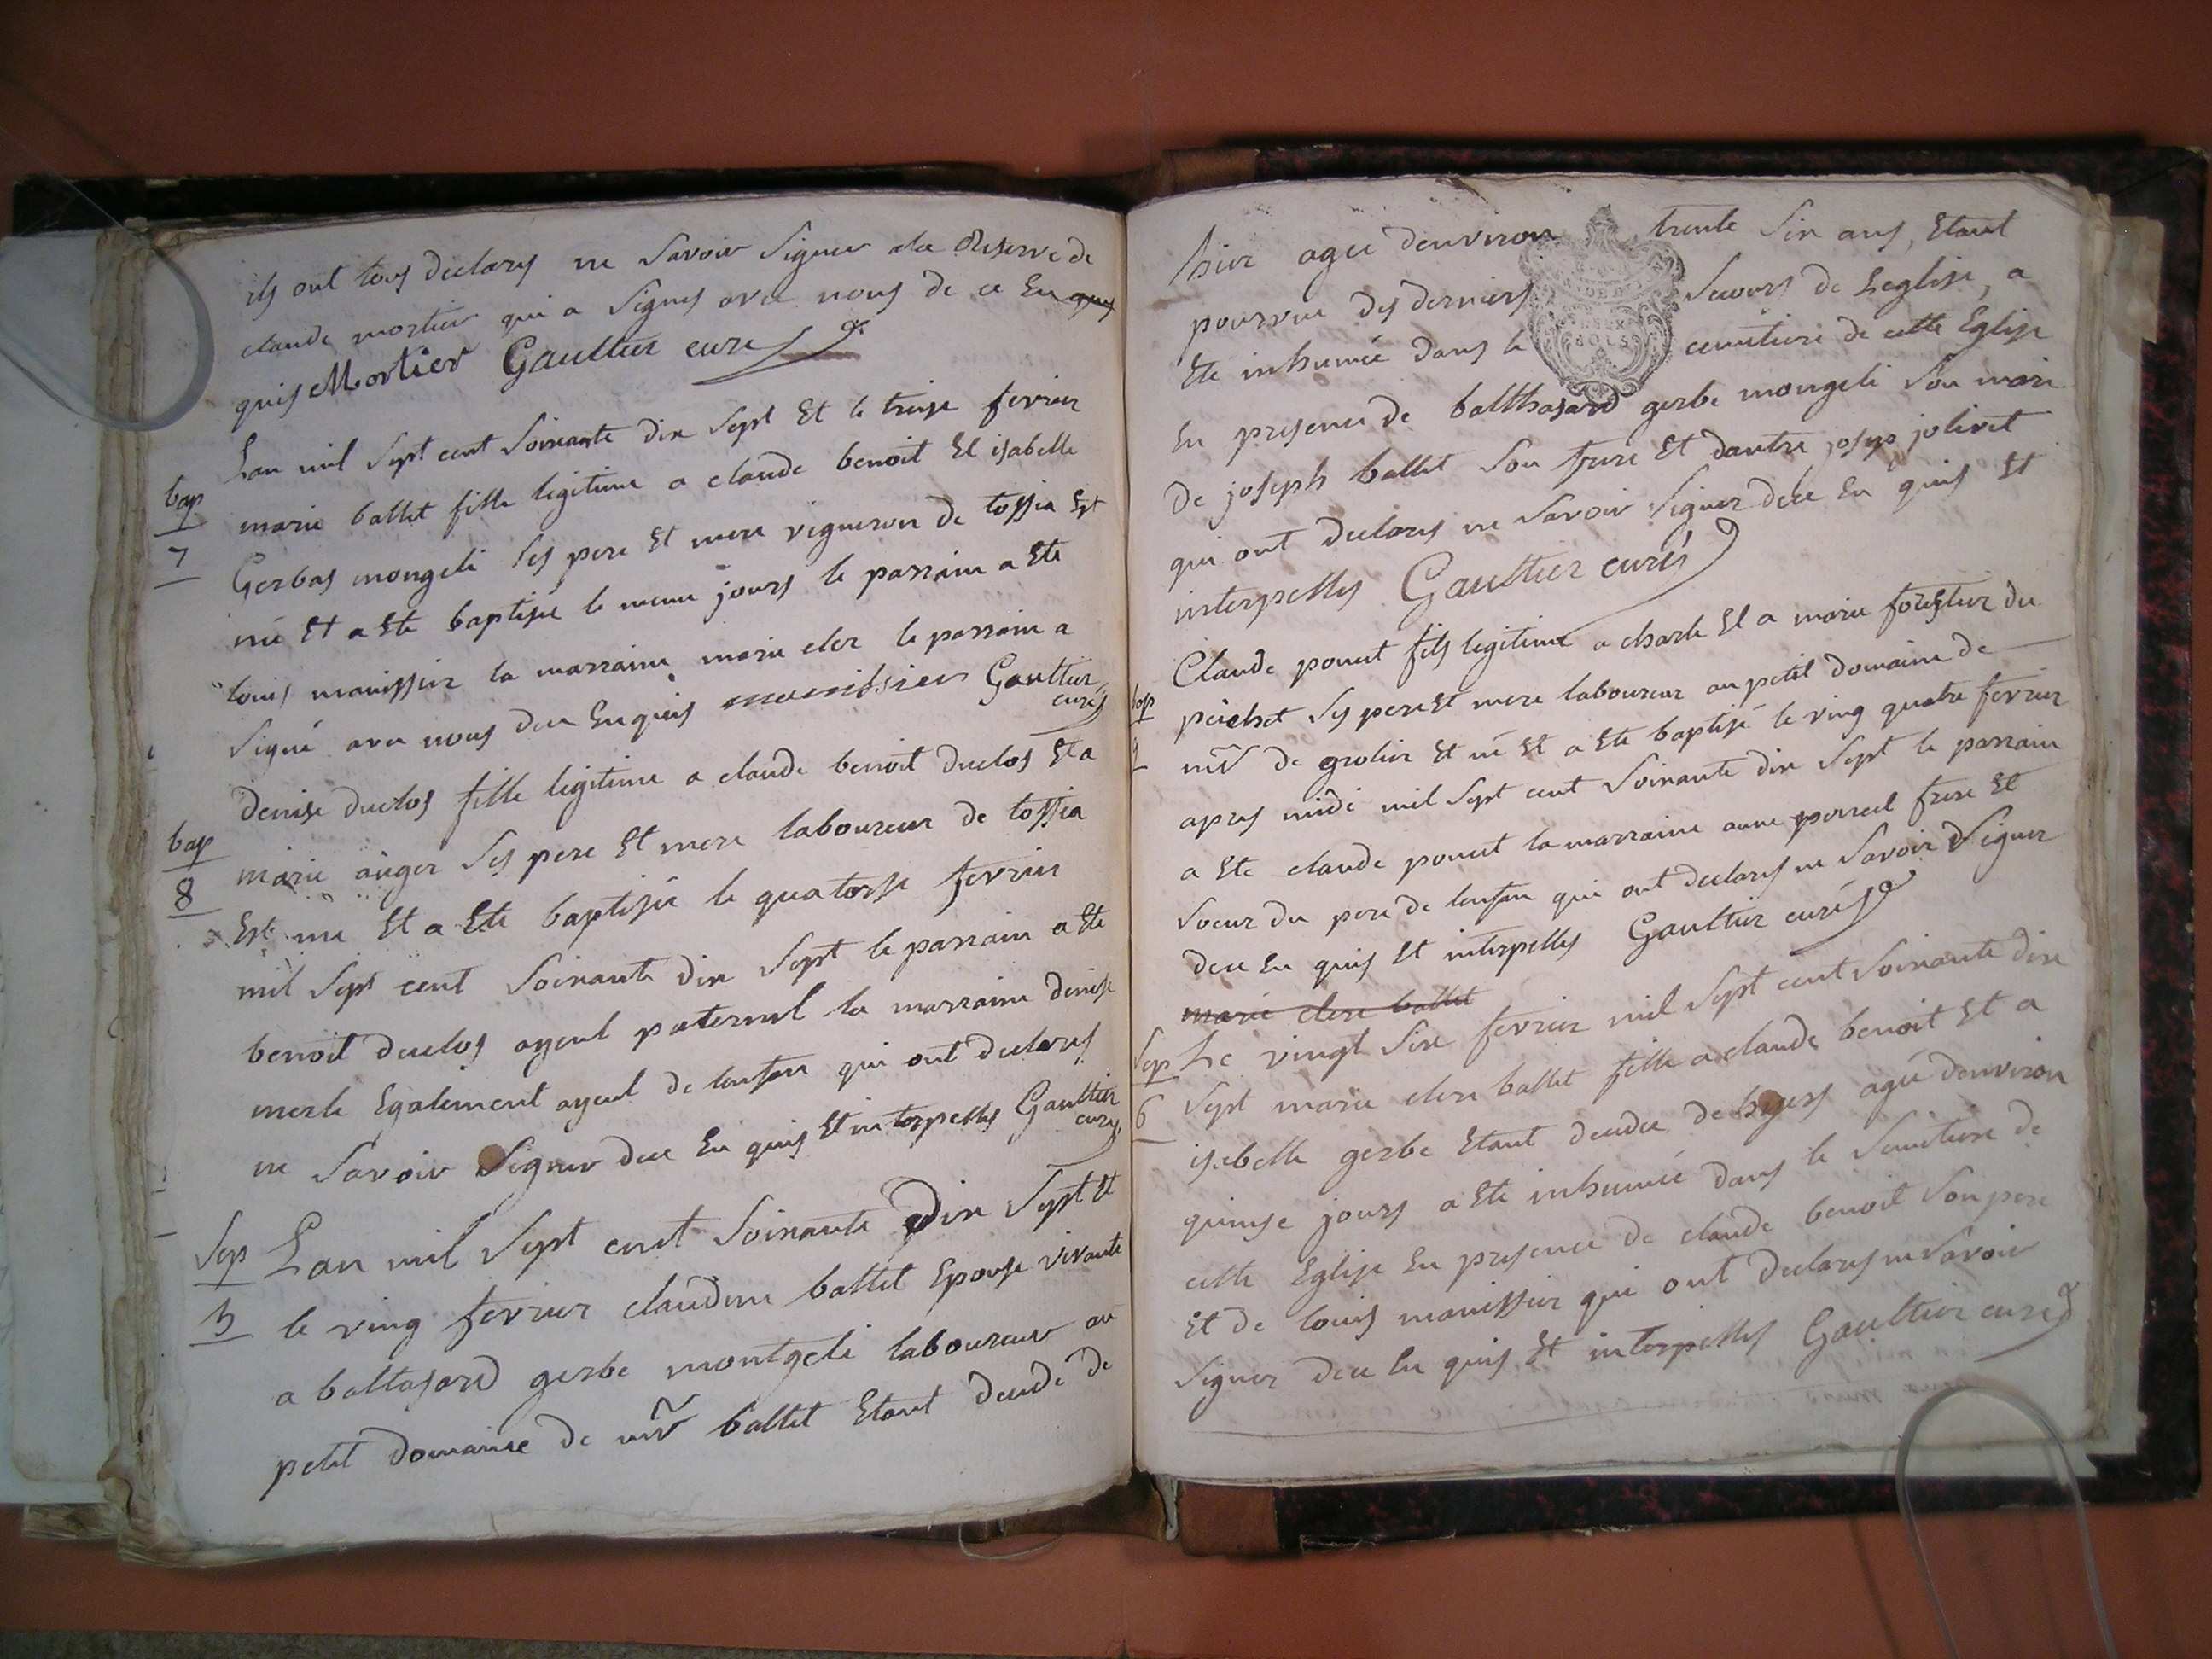 ils ont tous declarés ne Savoir Signer ala Reserve de
claude mortier qui a Signés avec nous de ce En ques
quis Mortier Gaultier curé
bap
7
Lan mil Sept cent Soixante dix Sept Et le treize fevrier
marie ballet fille legitime a claude benoit Et isabelle
Gerbas mongeli Ses pere Et mere vigneron de tossia Est
né Et a Eté baptisée le meme jours le parrain a Eté
louis manissier la marraine marie cler le parrain a
Signé avec nous dece Enquis manissier Gaultier
curés
bap
8
denise duclos fille legitime a claude benoit duclos Et a
marie auger Ses pere Et mere laboureur de tossia
Est né Et a Eté baptisée le quatorse fevrier
mil Sept cent Soixante dix Sept le parrain a Eté
benoit duclos ayeul paternel la marraine denise
merle Egalement ayeul de lenfan qui ont declarés
ne Savoir Signer dece En quis Et interpellés Gaultier
curés
Sep
5
Lan mil Sept cent Soixante Dix Sept Et
le ving fevrier claudine ballet Epouse vivante
a baltasard gerbe montgeli laboureur au
petit domaine de mr ballet Etant decede de
hier agee denviron trente Six ans, Etant
pourvue des derniers Secours de Leglise, a
Ete inhumée dans le cemitiere de cette Eglise
En presence de balthasard gerbe mongeli Son mari
De joseph ballet Son frere Et dautre josep jolivet
qui ont declarés ne Savoir Signer dece En quis Et
interpellés Gaultier curés
bap
9
Claude ponent fils legitime a charle Et a marie forestier du
peichet Ses pere Et mere laboureur au petit domaine de
mr de grolier Et né Et a Ete baptisé le ving quatre fevrier
apres midi mil Sept cent Soixante dix Sept le parrain
a Ete claude ponent la marraine anne ponent frere Et
Soeur du pere de lenfan qui ont declarés ne Savoir Signer
dece En quis Et interpellés Gaultier curés
marie clere ballet
Sep
6
Le vingt Six fevrier mil Sept cent Soixante dix
Sept marie clere ballet fille a claude benoit Et a
isabelle gerbe Etant decedee de hyers agée denviron
quinse jours a Ete inhumée dans le Semitiere de
cette Eglise En presence de claude benoit Son pere
Et de louis manissier qui ont declarés ne Savoir
Signer dece En quis Et interpellés Gaultier curés
DEUX
SOLS